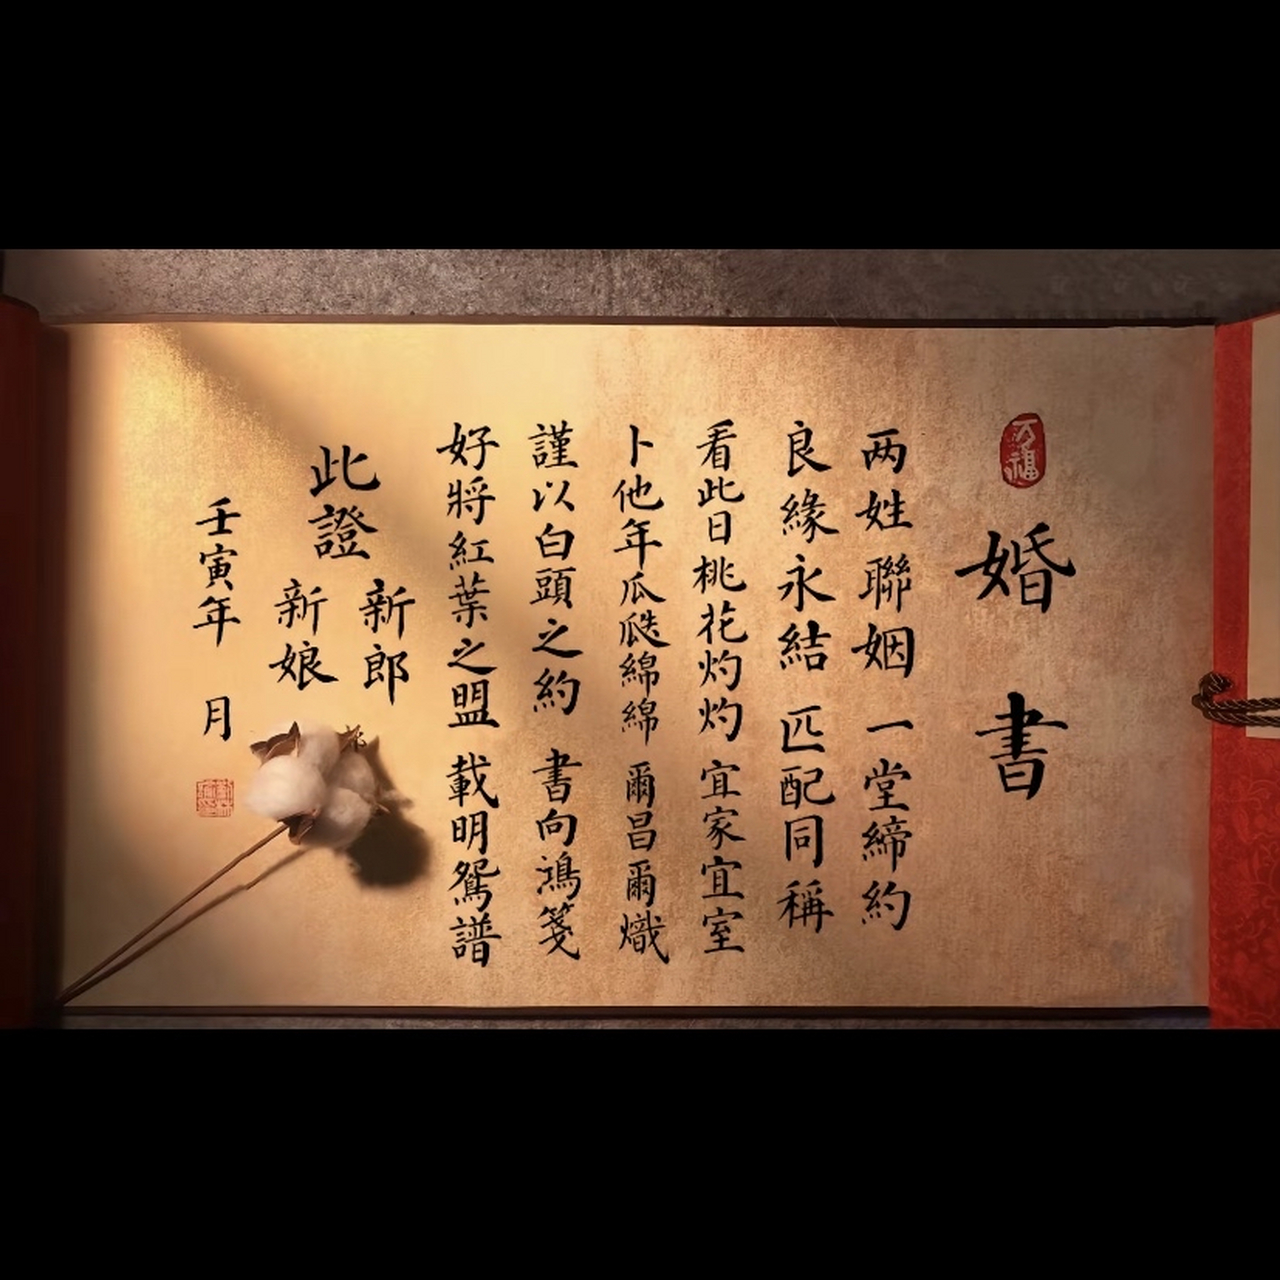 万福
婚書
两姓聯姻 一堂締約
良緣永結 匹配同稱
看此日桃花灼灼 宜家宜室
卜他年瓜瓞綿綿 爾昌爾熾
謹以白頭之約 書向鴻箋
好將紅葉之盟 載明鴛譜
此證
新郎
新娘
壬寅年 月